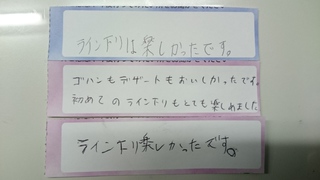 ラインドリは楽しかったです。
ゴハンもデザートもおいしかったです。
初めてのラインドリもとても楽しめました
ラインドリ楽しかったです。